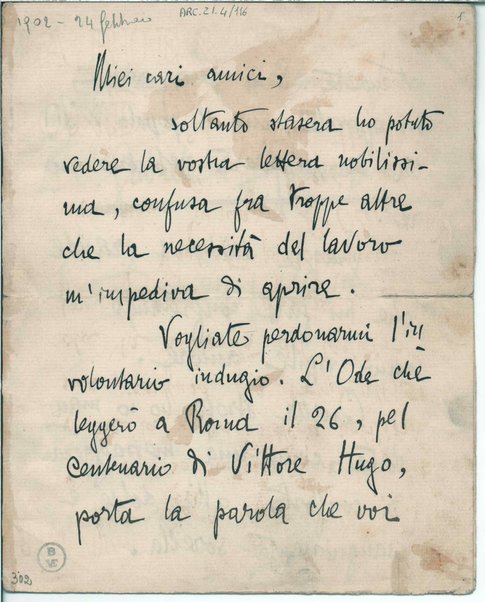 1902 - 24 febbraio
ARC.21.4/116
1
Miei cari amici,
soltanto stasera ho potuto
vedere la vostra lettera nobilissi-
ma, confusa fra troppe altre
che la necessità del lavoro
m'impediva di aprire.
Vogliate perdonarmi l'in
volontario indugio. L'Ode che
leggerò a Roma il 26, pel
centenario di Vittore Hugo,
porta la parola che voi
302